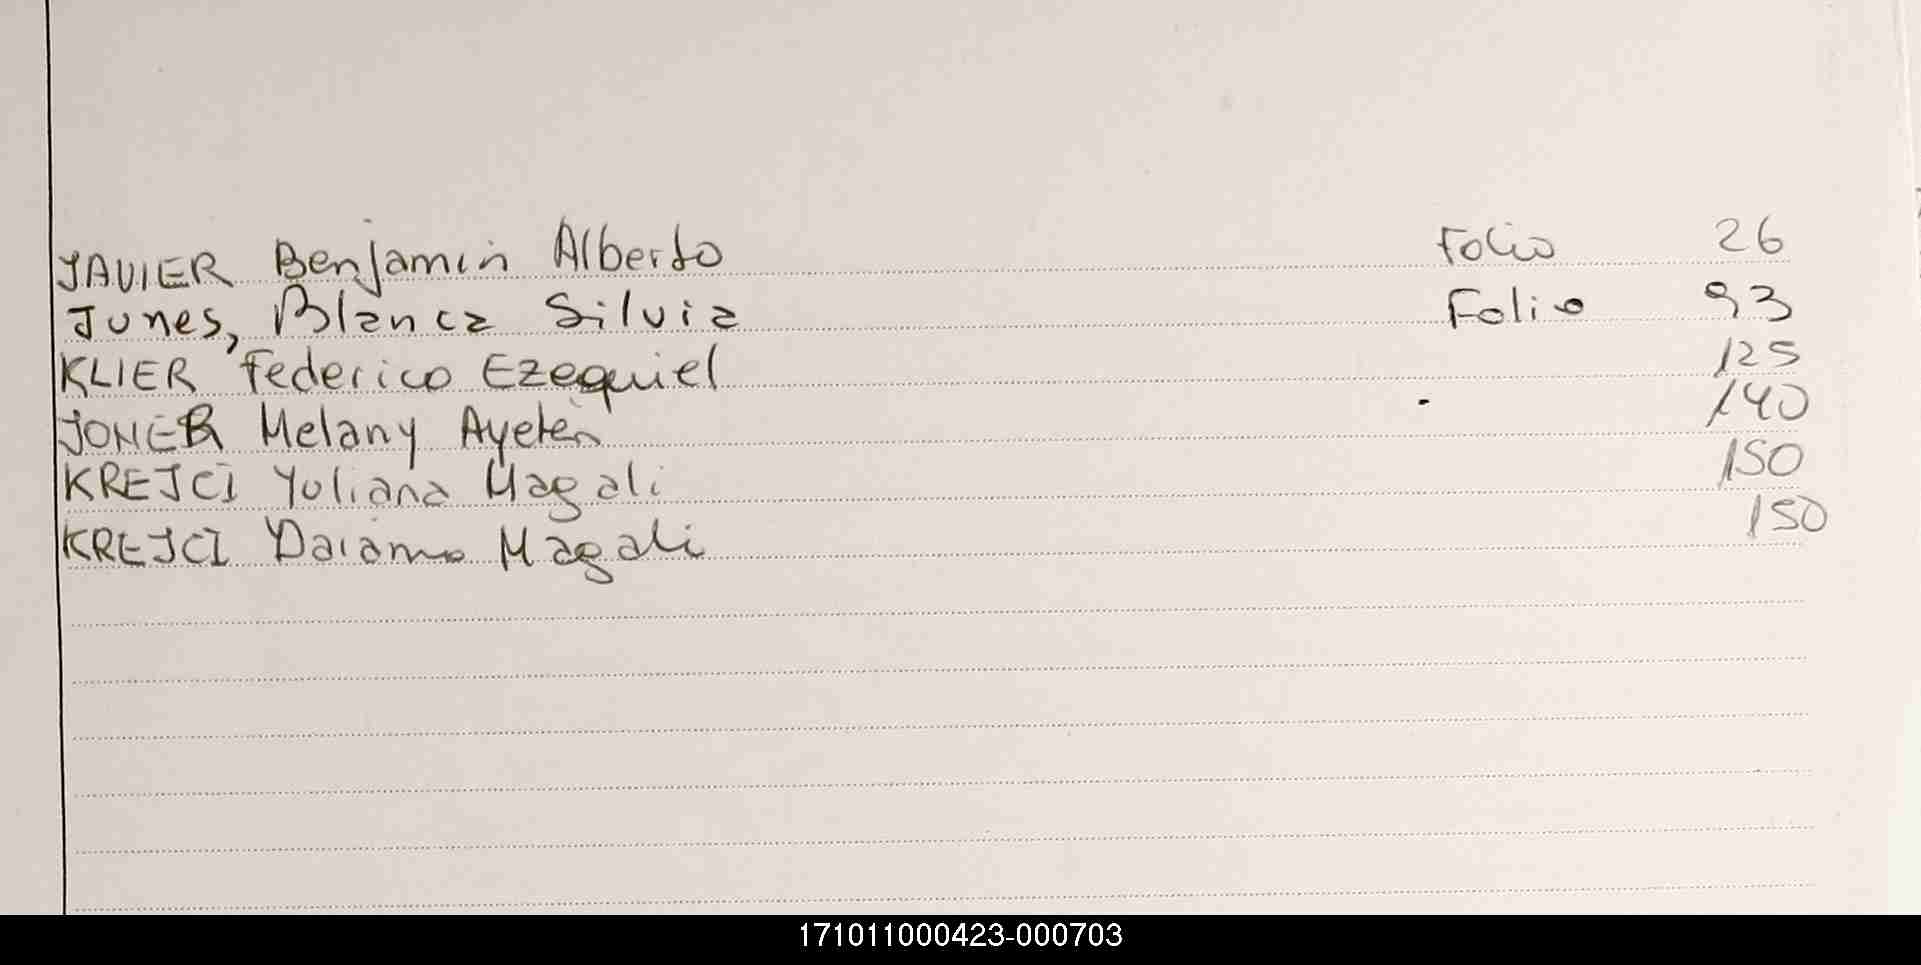 JAVIER Benjamin Alberto Folio 26
Junes, Blanca Silvia Folio 93
KLIER Federico Ezequiel 125
JONER Melany Ayelén 140
KREJCI Yuliana Magali 150
KREJCI Daiana Magali 150
171011000423-000703